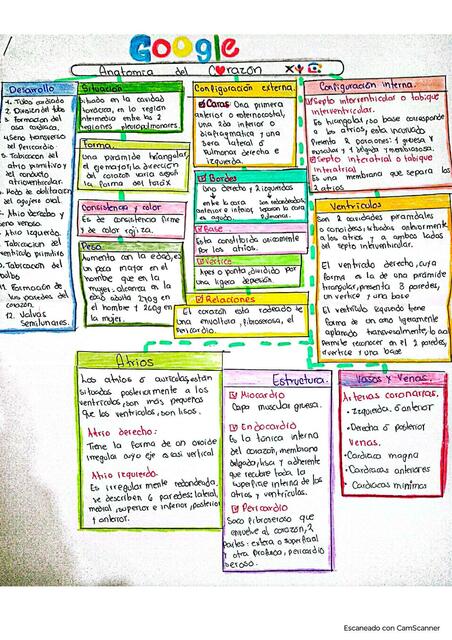 Google
Anatomía del Corazón
Desarrollo
1. Tubo cardiado
2. División del tubo
3. Formación del asa cardiaca.
4. Seno transverso del Pericardio.
5. Tabicación del atrio primitivo y del conducto atrioventricular.
del agujero oval.
7. Atrio derecho y seno venoso.
8. Atrio izquierdo.
9. Tabicación del ventrículo primitivo
10. Tabicación del bulbo
11. Formación de las paredes del corazón.
12. Valvas Semilunares.
Situación
Situado en la cavidad torácica, en la región intermedia entre las 2 regiones pleuropulmonares.
Forma.
Una pirámide triangular, el eje mayor, la dirección del corazón varía según la forma del tórax
Consistencia y color
Es de consistencia firme y de color rojiza.
Peso
Aumenta con la edad, es un poco mayor en el hombre que en la mujer, alcanza en la edad adulta 270g en el hombre y 260g en la mujer.
Configuración externa.
Caras: Una primera anterior o esternocostal, una 2da inferior o diafragmática y una 3era lateral o Pulmonar derecha e izquierda.
Bordes
Uno derecho y 2 izquierdos
entre la cara anterior e inferior
Son redondeados, con la cara Pulmonar.
Base
Esta constituida únicamente por los atrios.
Vértice
Apex o punta, dividido por una ligera depresión.
Relaciones
El corazón esta rodeado de una envoltura, fibroserosa, el pericardio.
Configuración interna.
Septo interventricular o tabique interventricular.
Es triangular, su base corresponde a los atrios, está inervado Presenta 2 porciones: 1 gruesa y muscular y 1 delgada y membranosa.
Septo interatrial o tabique interatrial
Es una membrana que separa los 2 atrios
Ventrículos
Son 2 cavidades piramidales o conoides, situadas anteriormente a los atrios y a ambos lados del septo interventricular.
El ventrículo derecho, cuya forma es la de una pirámide triangular, presenta 3 paredes, un vértice y una base
El ventrículo izquierdo tiene forma de un cono ligeramente aplanado transversalmente, lo que permite reconocer en el 2 paredes, 1 vértice y una base
Atrios
Los atrios o aurículas, están situados posteriormente a los ventrículos, son más pequeños que los ventrículos, son lisos.
Atrio derecho:
Tiene la forma de un ovoide irregular cuyo eje es casi vertical
Atrio izquierdo.
Es irregular mente redondeada, se describen 6 paredes: lateral, medial, superior e inferior, posterior y anterior.
Estructura.
Miocardio
Capa muscular gruesa.
Endocardio
Es la túnica interna del corazón, membrana delgada, lisa y adherente que recubre toda la superficie interna de los atrios y ventrículos.
Pericardio
Saco fibroseroso que envuelve al corazón, 2 Partes: externa o superficial y otra profunda, pericardio seroso.
Vasos y Venas.
Arterias coronarias.
• Izquierda, o anterior
• Derecha o posterior
Venas.
• Cardiaca magna
• Cardiacas anteriores
• Cardiacas mínimas
Escaneado con CamScanner